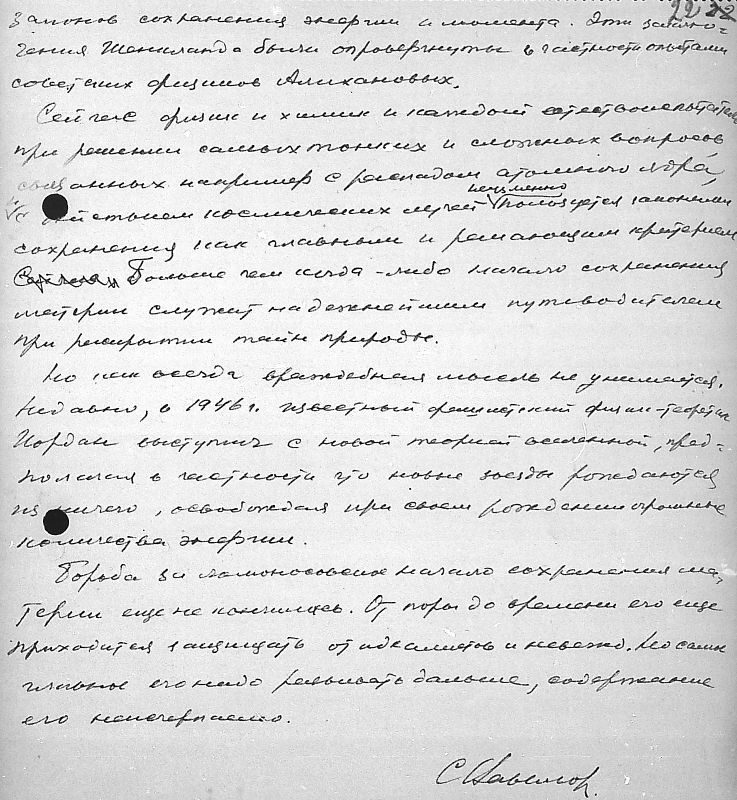 22
законов сохранения энергии и момента. Эти заклю-
чения Шенкланда были опровергнуты в частности опытами
советских физиков Алихановых.
Сейчас физик и химик и каждый естествоиспытатель
при решении самых тонких и сложных вопросов
связанных например с распадом атомного ядра,
с действием космических лучей неизменно пользуется законами
сохранения как главным и решающим критерием
Больше чем когда-либо начало сохранения
материи служит надежнейшим путеводителем
при раскрытии тайн природы.
Но как всегда враждебная мысль не унимается.
Недавно, в 1946 г. известный фашистский физик-теоретик
Иордан выступил с новой теорией вселенной, пред-
полагая в частности что новые звезды рождаются
из ничего, освобождая при своем рождении огромные
количества энергии.
Борьба за ломоносовское начало сохранения ма-
терии еще не кончилась. От поры до времени его еще
приходится защищать от идеалистов и невежд. Но самое
главное его надо развивать дальше, содержание
его неисчерпаемо.
С Вавилов.